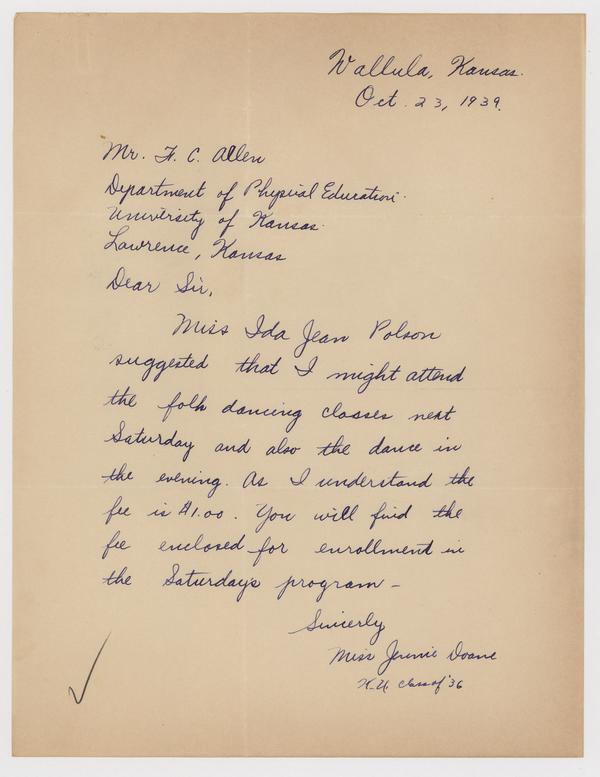 Wallula, Kansas.
Oct. 23, 1939.
Mr. F. C. Allen
Department of Physical Education.
University of Kansas.
Lawrence, Kansas
Dear Sir,
Miss Ida Jean Polson
suggested that I might attend
the folk dancing classes next
Saturday and also the dance in
the evening. As I understand the
fee is $1.00. You will find the
fee enclosed for enrollment in
the Saturday's program –
Sincerly
Miss Jennie Doane
K.U. Class of '36